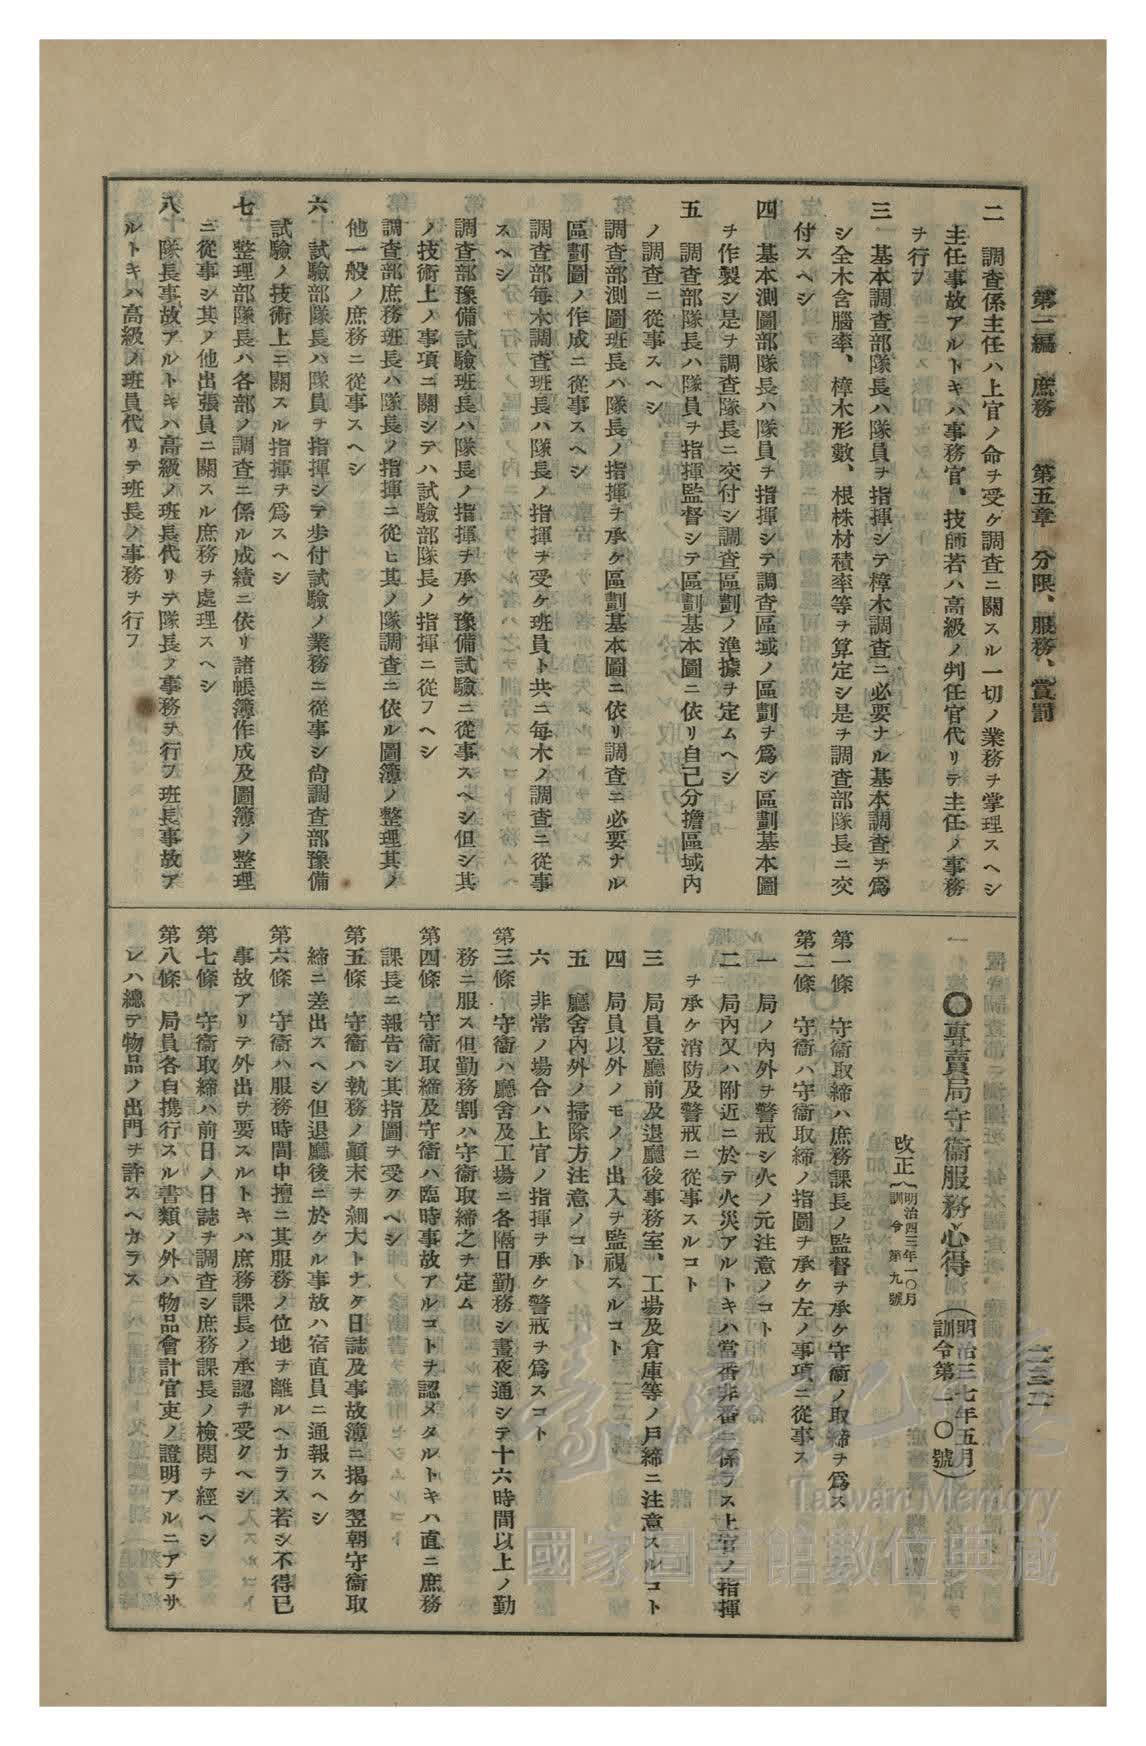 第一編　庶務　　第五章　分限、服務、賞罰
二三二
二　調査係主任ハ上官ノ命ヲ受ケ調査ニ關スル一切ノ業務ヲ掌理スヘシ
主任事故アルトキハ事務官、技師若ハ高級ノ判任官代リテ主任ノ事務
ヲ行フ
三　基本調査部隊長ハ隊員ヲ指揮シテ樟木調査ニ必要ナル基本調査ヲ爲
シ全木含腦率、樟木形數、根株材積率等ヲ算定シ是ヲ調査部隊長ニ交
付スヘシ
四　基本測圖部隊長ハ隊員ヲ指揮シテ調査區域ノ區劃ヲ爲シ區劃基本圖
ヲ作製シ是ヲ調査隊長ニ交付シ調査區劃ノ準據ヲ定ムヘシ
五　調査部隊長ハ隊員ヲ指揮監督シテ區劃基本圖ニ依リ自己分擔區域內
ノ調査ニ從事スヘシ
調査部測圖班長ハ隊長ノ指揮ヲ承ケ區劃基本圖ニ依リ調査ニ必要ナル
區劃圖ノ作成ニ從事スヘシ
調査部每木調査班長ハ隊長ノ指揮ヲ受ケ班員ト共ニ每木ノ調査ニ從事
スヘシ
調査部豫備試驗班長ハ隊長ノ指揮ヲ承ケ豫備試驗ニ從事スヘシ但シ其
ノ技術上ノ事項ニ關シテハ試驗部隊長ノ指揮ニ從フヘシ
調査部庶務班長ハ隊長ノ指揮ニ從ヒ其ノ隊調査ニ依ル圖簿ノ整理其ノ
他一般ノ庶務ニ從事スヘシ
六　試驗部隊長ハ隊員ヲ指揮シテ步付試驗ノ業務ニ從事シ尙調査部豫備
試驗ノ技術上ニ關スル指揮ヲ爲スヘシ
七　整理部隊長ハ各部ノ調査ニ係ル成績ニ依リ諸帳簿作成及圖簿ノ整理
ニ從事シ其ノ他出張員ニ關スル庶務ヲ處理スヘシ
八　隊長事故アルトキハ高級ノ班長代リテ隊長ノ事務ヲ行フ班長事故ア
ルトキハ高級ノ班員代リテ班長ノ事務ヲ行フ
◎專賣局守衞服務心得（明治三七年五月訓令第一〇號）
改正（明治四三年一〇月訓令第九號）
第一條　守衞取締ハ庶務課長ノ監督ヲ承ケ守衞ノ取締ヲ爲ス
第二條　守衞ハ守衞取締ノ指圖ヲ承ケ左ノ事項ニ從事ス
一　局ノ內外ヲ警戒シ火ノ元注意ノコト
二　局內又ハ附近ニ於テ火災アルトキハ當番非番ニ係ラス上官ノ指揮
ヲ承ケ消防及警戒ニ從事スルコト
三　局員登廳前及退廳後事務室、工場及倉庫等ノ戶締ニ注意スルコト
四　局員以外ノモノノ出入ヲ監視スルコト
五　廳舍內外ノ掃除方注意ノコト
六　非常ノ場合ハ上官ノ指揮ヲ承ケ警戒ヲ爲スコト
第三條　守衞ハ廳舍及工場ニ各隔日勤務シ晝夜通シテ十六時間以上ノ勤
務ニ服ス但勤務割ハ守衞取締之ヲ定ム
第四條　守衞取締及守衞ハ臨時事故アルコトヲ認メタルトキハ直ニ庶務
課長ニ報告シ其指圖ヲ受クヘシ
第五條　守衞ハ執務ノ顚末ヲ細大トナク日誌及事故簿ニ揭ケ翌朝守衞取
締ニ差出スヘシ但退廳後ニ於ケル事故ハ宿直員ニ通報スヘシ
第六條　守衞ハ服務時間中擅ニ其服務ノ位地ヲ離ルヘカラス若シ不得已
事故アリテ外出ヲ要スルトキハ庶務課長ノ承認ヲ受クヘシ
第七條　守衞取締ハ前日ノ日誌ヲ調査シ庶務課長ノ檢閱ヲ經ヘシ
第八條　局員各自携行スル書類ノ外ハ物品會計官吏ノ證明アルニアラサ
レハ總テ物品ノ出門ヲ許スヘカラス
臺灣記憶
Taiwan Memory
國家圖書館數位典藏